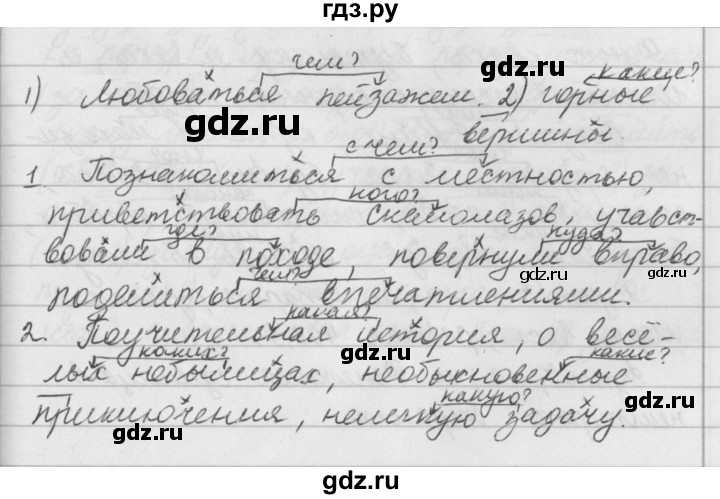 гдз.ру
чем? какие?
1) Любоваться пейзажем. 2) горные
с чем? вершины.
1 Познакомиться с местностью,
кого?
приветствовать скалолазов, учавст-
где? куда?
вовали в походе, повернули вправо,
чем?
поделиться впечатлениями.
какая?
2. Поучительная история, о весё-
каких? какие?
лых небылицах, необыкновенные
какую?
приключения, нелегкую задачу.
gdz.ru
gdz.ru
gdz.ru
gdz.ru
gdz.ru
gdz.ru
gdz.ru
gdz.ru
gdz.ru
gdz.ru